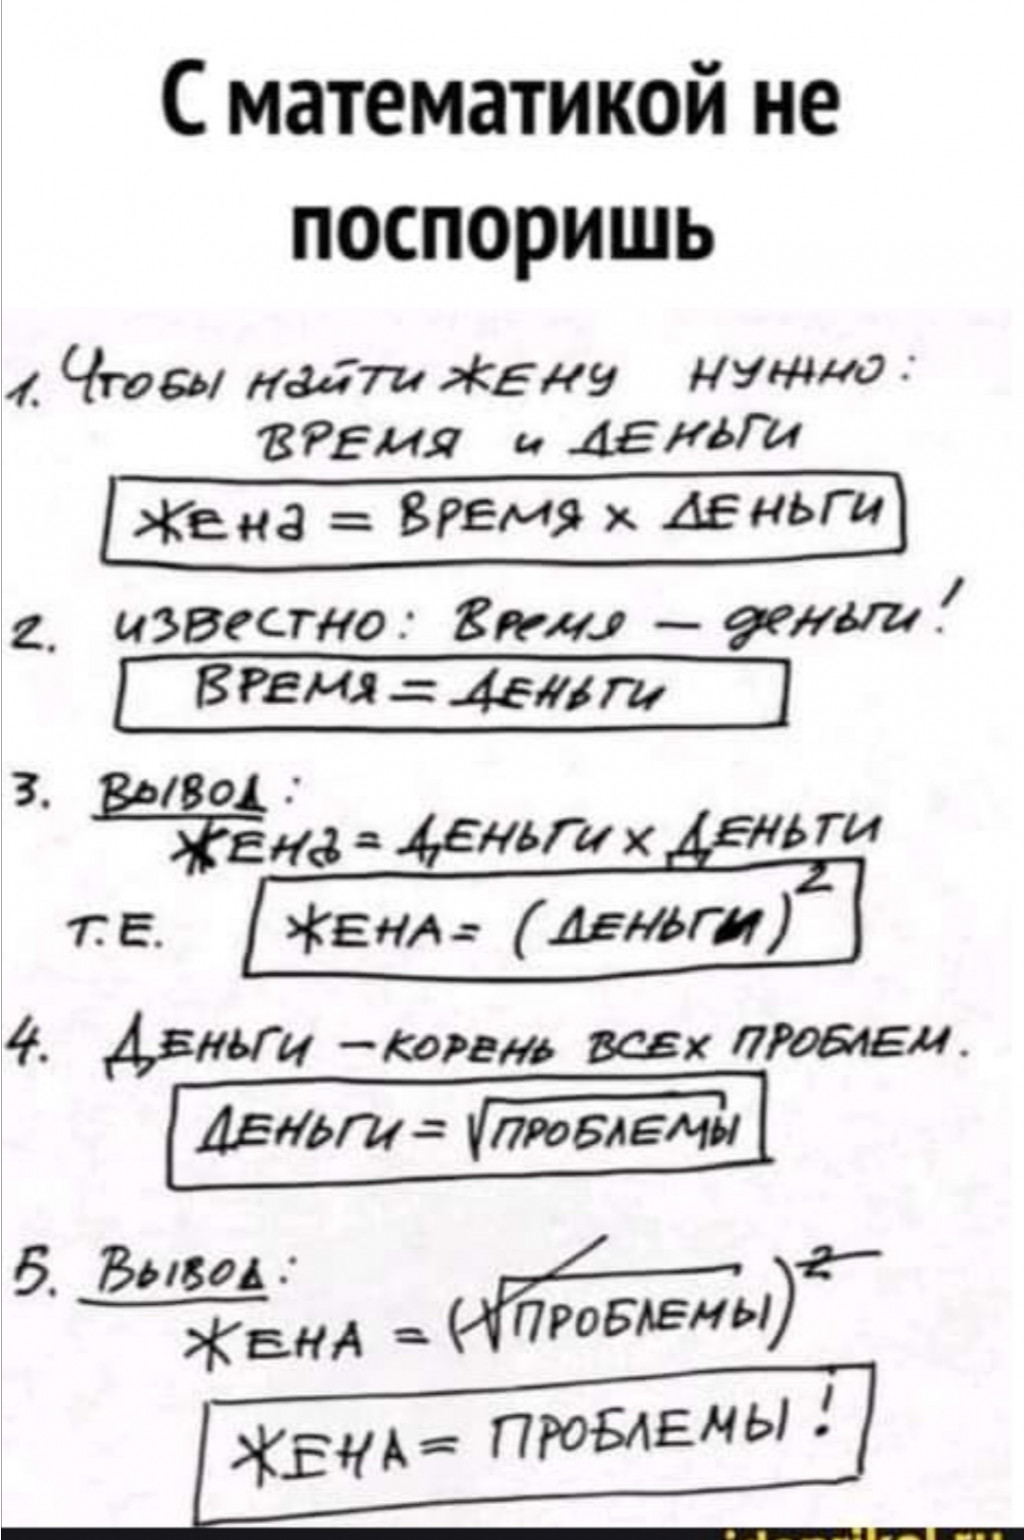 С математикой не
поспоришь
1. Чтобы найти жену нужно:
время и деньги
жена = время x деньги
2. известно: Время – деньги!
Время = деньги
3. Вывод:
жена = деньги x деньги
т.е. жена = (деньги)²
4. Деньги – корень всех проблем.
деньги = √проблемы
5. Вывод:
жена = (√проблемы)²
жена = проблемы!